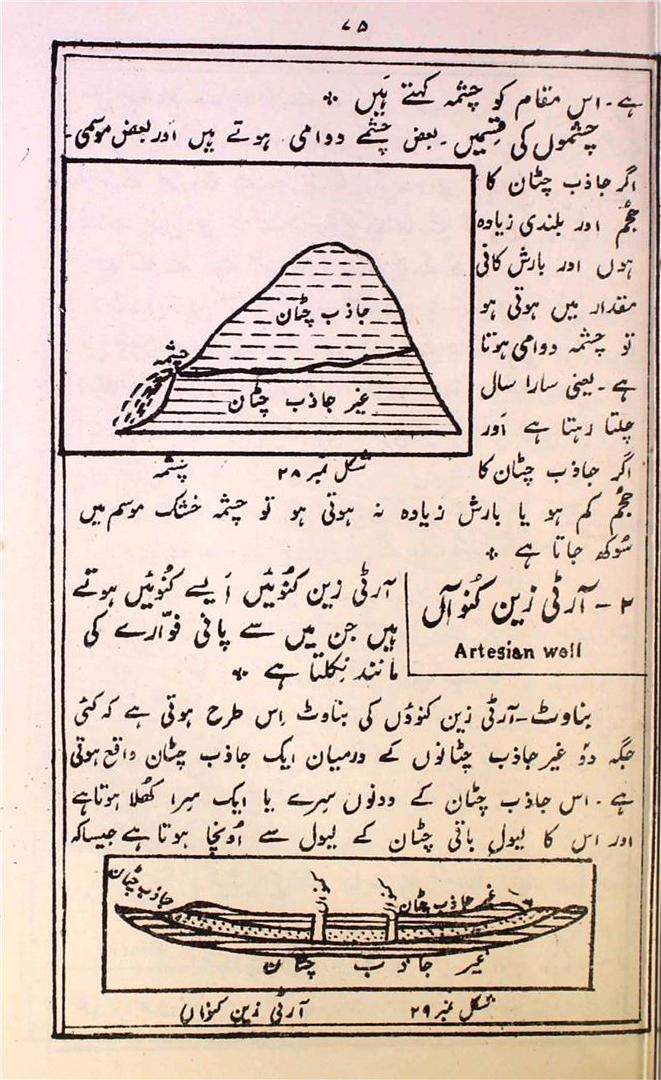 ۷۵
ہے۔ اس مقام کو چشمہ کہتے ہیں ٭
چشموں کی قسمیں۔ بعض چشمے دوامی ہوتے ہیں اور بعض موسمی۔
اگر جاذب چٹان کا
حُجم اور بلندی زیادہ
ہوں اور بارش کافی
مقدار میں ہوتی ہو
تو چشمہ دوامی ہوتا
ہے۔ یعنی سارا سال
چلتا رہتا ہے اور
اگر جاذب چٹان کا
جاذب چٹان
چشمہ
غیر جاذب چٹان
شکل نمبر ۲۸ چشمہ
حُجم کم ہو یا بارش زیادہ نہ ہوتی ہو تو چشمہ خشک موسم میں
سُوکھ جاتا ہے ٭
۲ - آرٹی زین کُنوآں
Artesian well
آرٹی زین کُنوئیں اَیسے کُنوئیں ہوتے
ہیں جن میں سے پانی فوّارے کی
مانند نِکلتا ہے ٭
بناوٹ۔ آرٹی زین کنوؤں کی بناوٹ اِس طرح ہوتی ہے کہ کئی
جگہ دو غیر جاذب چٹانوں کے درمیان ایک جاذب چٹان واقع ہوتی
ہے۔ اس جاذب چٹان کے دونوں سِرے یا ایک سِرا کُھلا ہوتا ہے
اور اس کا لیول باقی چٹان کے لیول سے اُونچا ہوتا ہے جیسا کہ
جاذب چٹان
کنواں
کنواں
غیر جاذب چٹان
غیر جاذب چٹان
شکل نمبر ۲۹ آرٹی زین کنواں